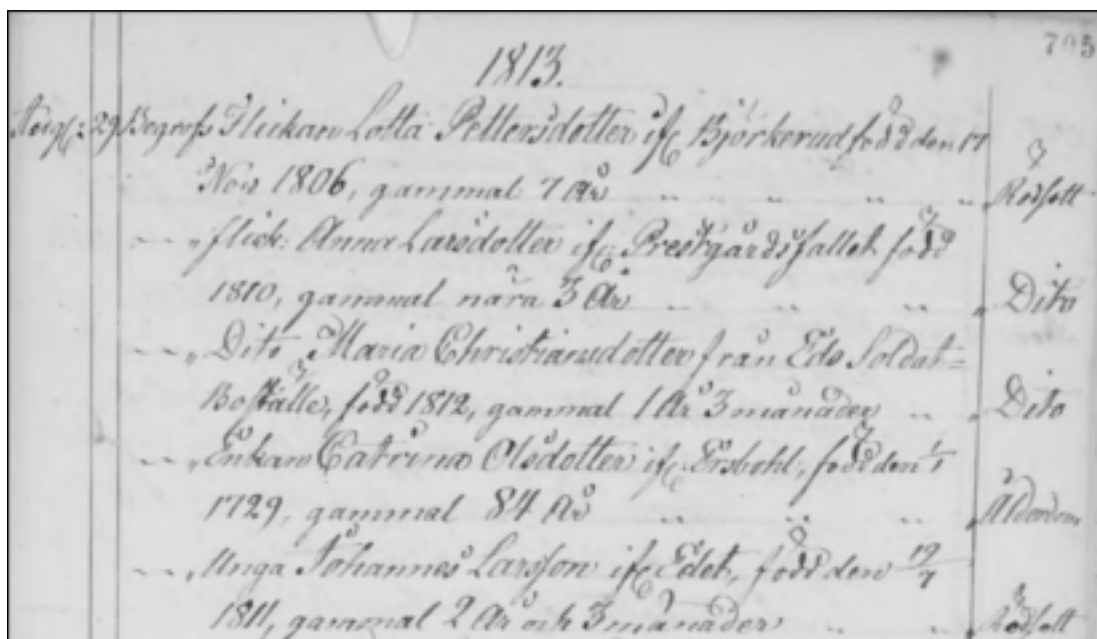 705
1813.
Aug: 29 Begrofs Flickan Lotta Pettersdotter ifr Björkerud född den 17
Nov 1806, gammal 7 År " " " " " Rödsott
" " flick: Anna Larsdotter ifr Prestgårdsfallet född
1810, gammal nära 3 År " " " " Dito
" " Dito Maria Christiansdotter från Eds Soldat=
Boställe, född 1812, gammal 1 År 3 månader " " Dito
" " Enkan Catrina Olsdotter ifr Ersbohl, född den 1/1
1729, gammal 84 År " " " " Ålderdom
" " Unga Johannes Larsson ifr Edet, född den 19/7
1811, gammal 2 År och 3 månader " " Rödsott